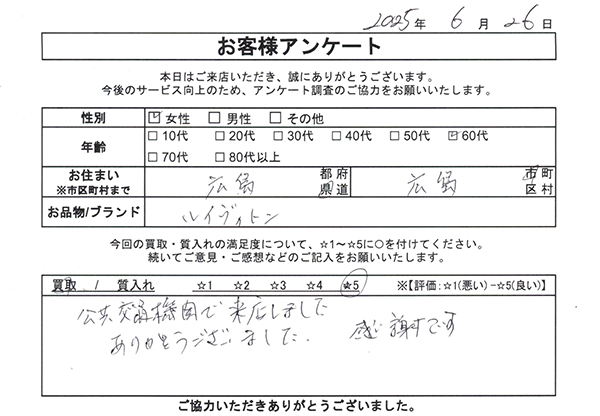 2025年 6月 26日
お客様アンケート
本日はご来店いただき、誠にありがとうございます。
今後のサービス向上のため、アンケート調査のご協力をお願いいたします。
性別 ☑ 女性 □ 男性 □ その他
年齢 □ 10代 □ 20代 □ 30代 □ 40代 □ 50代 ☑ 60代
□ 70代 □ 80代以上
お住まい ※市区町村まで 広島 都府県道 広島 市町区村
お品物/ブランド ルイヴィトン
今回の買取・質入れの満足度について、☆1～☆5に○を付けてください。
続いてご意見・ご感想などのご記入をお願いします。
買取 / 質入れ ☆1 ☆2 ☆3 ☆4 ☆5 ※【評価:☆1(悪い)-☆5(良い)】
公共交通機関で来店しました
ありがとうございました。 感謝です
ご協力いただきありがとうございました。